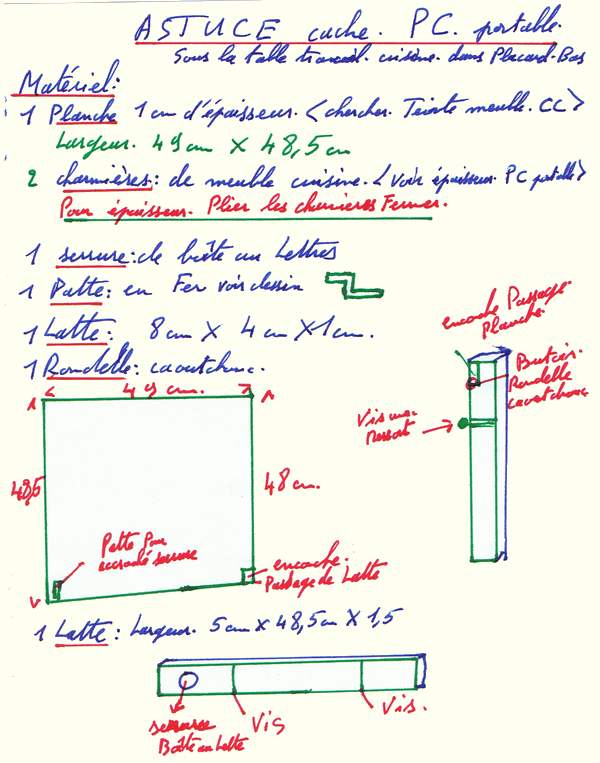 ASTUCE cache. PC. portable.
Sous la table travail. cuisine. dans Placard. Bas
Matériel:
1 Planche 1 cm d'épaisseur. <chercher. Teinte meuble. CC>
Largeur. 49 cm X 48,5 cm
2 charnières: de meuble cuisine. <voir épaisseur. PC portable>
Pour épaisseur. Plier les charnieres Fermer.
1 serrure: de boîte au Lettres
1 Patte: en Fer voir dessin
1 Latte: 8 cm X 4 cm X 1 cm.
1 Rondelle: caoutchouc.
49 cm.
48,5
48 cm.
Patte pour
accroché serrure
encoche.
Passage de Latte
encoche Passage.
Planche.
Butoir.
Rondelle
caoutchouc
Vis
Ressort
1 Latte: Largeur. 5 cm X 48,5 cm X 1,5
serrure
Boîte au Lette
Vis
Vis.